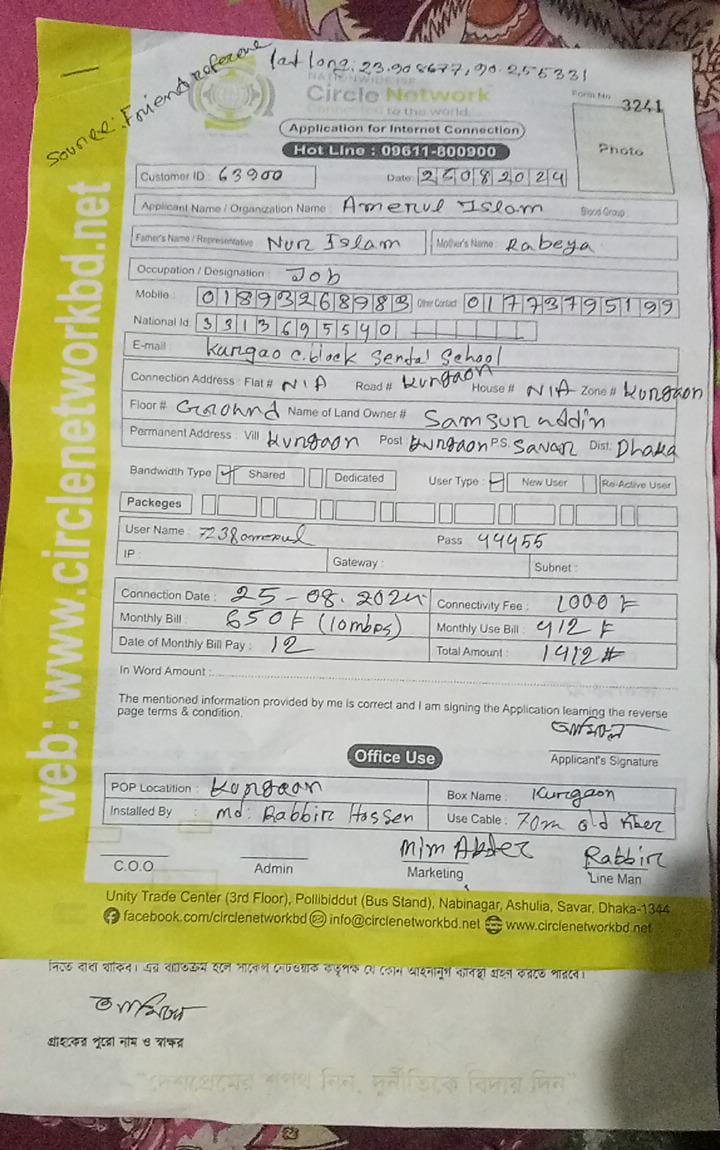 lat long: 23.908677,90.255331
Source: Friend reference
NATIONWIDE ISP
Circle Network
Connected to the world
Form No 3241
Application for Internet Connection
Photo
Hot Line : 09611-800900
Customer ID : 63900 Date: 25082024
Applicant Name / Organization Name : Amerul Islam Blood Group
Father's Name / Representative Nur Islam Mother's Name : Rabeya
Occupation / Designation : Job
Mobile : 01893268983 Other Contact 01773795199
National Id 3313695540
E-mail : Kurgao c.block Sendal School
Connection Address : Flat # N/A Road # Kurgaon House # N/A Zone # Kurgaon
Floor # Ground Name of Land Owner # Samsun uddin
Permanent Address : Vill Kurgaon Post Kurgaon P.S. Savar Dist: Dhaka
Bandwidth Type Shared Dedicated User Type : New User Re-Active User
Packeges
User Name : 7238amerul Pass 44455
IP : Gateway : Subnet :
Connection Date : 25-08.2024 Connectivity Fee : 1000 ৳
Monthly Bill : 650৳ (10mbps) Monthly Use Bill : 412 ৳
Date of Monthly Bill Pay : 12 Total Amount : 1412 #
In Word Amount :
The mentioned information provided by me is correct and I am signing the Application learning the reverse
page terms & condition.
Applicant's Signature
Office Use
POP Locatition : Kurgaon Box Name : Kurgaon
Installed By : Md: Rabbir Hossen Use Cable : 70m old fiber
Mim Akter Rabbir
C.O.O Admin Marketing Line Man
Unity Trade Center (3rd Floor), Pollibiddut (Bus Stand), Nabinagar, Ashulia, Savar, Dhaka-1344
facebook.com/circlenetworkbd info@circlenetworkbd.net www.circlenetworkbd.net
web: www.circlenetworkbd.net
দিতে বাধ্য থাকিব। এর ব্যতিক্রম হলে সার্কেল নেটওয়ার্ক কর্তৃপক্ষ যে কোন আইনানুগ ব্যবস্থা গ্রহণ করতে পারবে।
গ্রাহকের পুরো নাম ও স্বাক্ষর
"দেশপ্রেমের শপথ নিন, দুর্নীতিকে বিদায় দিন"